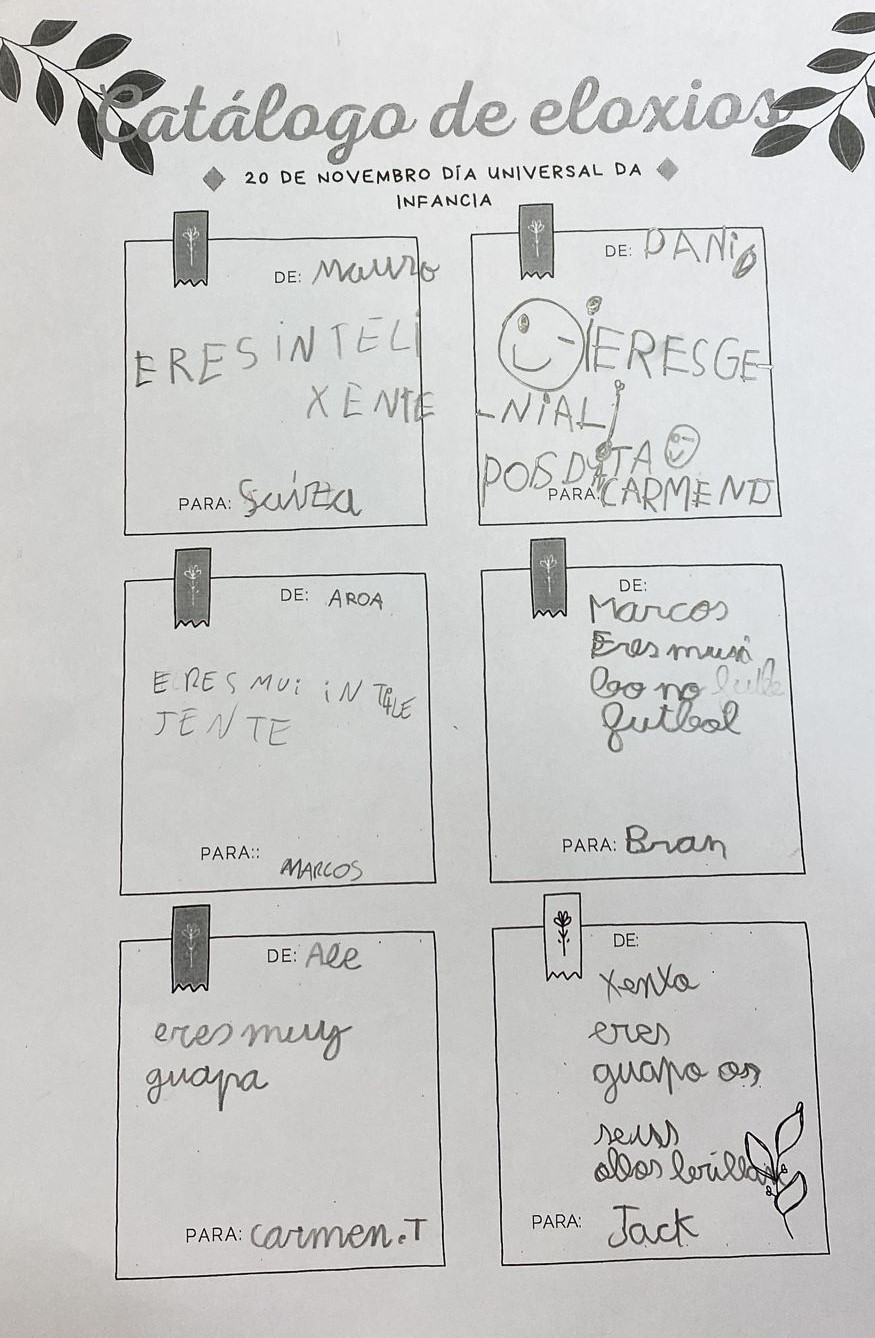 Catálogo de eloxios
20 DE NOVEMBRO DÍA UNIVERSAL DA
INFANCIA
DE: Mauro
ERES INTELI
XENTE
PARA:
DE: DANi
¡ERES GE-
-NIAL!
PARA: CARMEN D
DE: AROA
ERES MUi iN TELE
JENTE
PARA::
MARCOS
DE:
Marcos
Eres mui
bo no
futbol
PARA: Bran
DE: Ale
eres muy
guapa
PARA: carmen.T
DE:
eres
guapo os
seus
ollos brillan
PARA: Jack